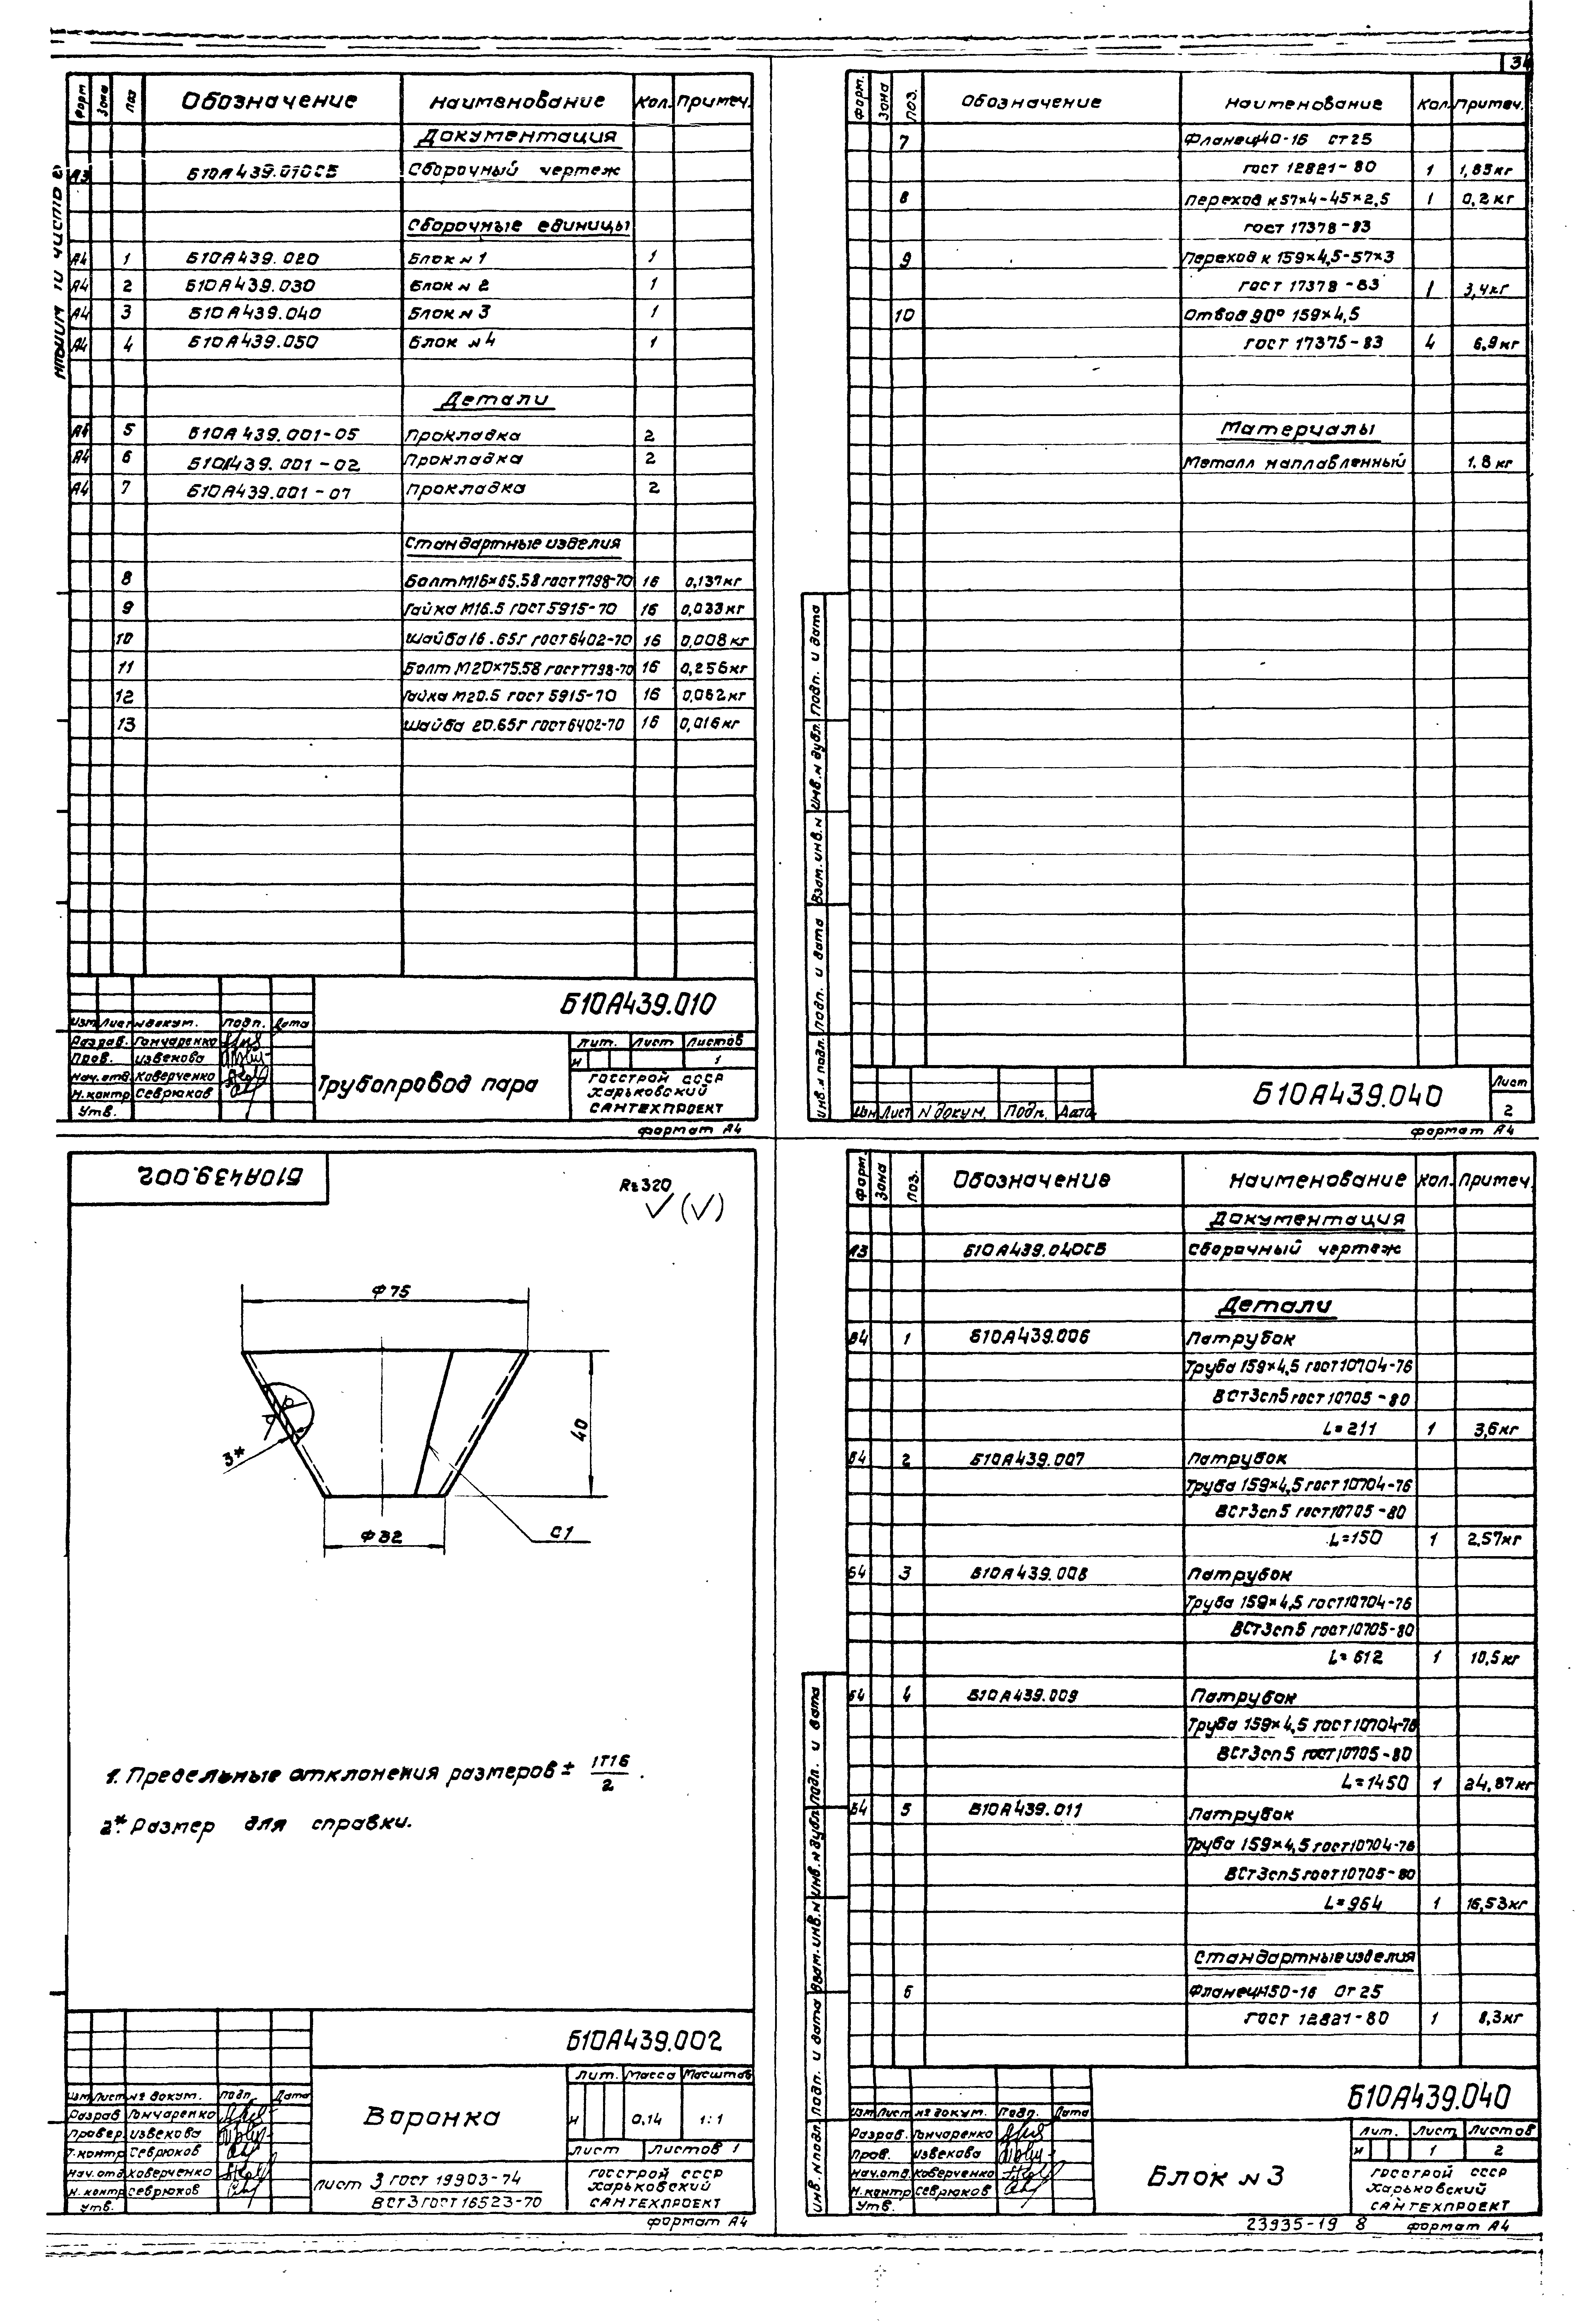 34
Альбом IV часть 2
Форм Зона Поз Обозначение Наименование Кол. Примеч.
Документация
А3 Б10А439.010СБ Сборочный чертеж
Сборочные единицы
А4 1 Б10А439.020 Блок N 1 1
А4 2 Б10А439.030 Блок N 2 1
А4 3 Б10А439.040 Блок N 3 1
А4 4 Б10А439.050 Блок N 4 1
Детали
А4 5 Б10А439.001-05 Прокладка 2
А4 6 Б10А439.001-02 Прокладка 2
А4 7 Б10А439.001-07 Прокладка 2
Стандартные изделия
8 Болт М16×65.58 ГОСТ 7798-70 16 0,137кг
9 Гайка М16.5 ГОСТ 5915-70 16 0,033кг
10 Шайба 16.65Г ГОСТ 6402-70 16 0,008кг
11 Болт М20×75.58 ГОСТ 7798-70 16 0,256кг
12 Гайка М20.5 ГОСТ 5915-70 16 0,062кг
13 Шайба 20.65Г ГОСТ 6402-70 16 0,016кг
Б10А439.010
Изм Лист N докум. Подп. Дата
Разраб. Гончаренко
Пров. Извекова
Нач.отд Коверченко
Н.контр Севрюков
Утв.
Трубопровод пара
Лит. Лист Листов
И 1
ГОССТРОЙ СССР
Харьковский
САНТЕХПРОЕКТ
Формат А4
Форм. Зона Поз. Обозначение Наименование Кол. Примеч.
7 Фланец 1-40-16 Ст 25
ГОСТ 12821-80 1 1,85кг
8 Переход К 57×4-45×2,5 1 0,2кг
ГОСТ 17378-83
9 Переход К 159×4,5-57×3
ГОСТ 17378-83 1 3,4кг
10 Отвод 90° 159×4,5
ГОСТ 17375-83 4 6,9кг
Материалы
Металл наплавленный 1,8кг
Инв.N подл. Подп. и дата Взам.инв.N Инв.N дубл. Подп. и дата
Изм Лист N докум. Подп. Дата
Б10А439.040
Лист
2
Формат А4
Б10А439.002
Rz320
Ф75
40
3*
Ф32
С1
1. Предельные отклонения размеров ± IT16/2.
2*. Размер для справки.
Б10А439.002
Изм Лист № докум. Подп. Дата
Разраб Гончаренко
Провер. Извекова
Т.контр Севрюков
Нач.отд Коверченко
Н.контр Севрюков
Утв.
Воронка
Лит. Масса Масштаб
И 0,14 1:1
Лист Листов 1
Лист 3 ГОСТ 19903-74
ВСт3 ГОСТ 16523-70
ГОССТРОЙ СССР
Харьковский
САНТЕХПРОЕКТ
Формат А4
Форм. Зона Поз. Обозначение Наименование Кол. Примеч.
Документация
А3 Б10А439.040СБ Сборочный чертеж
Детали
Б4 1 Б10А439.006 Патрубок
Труба 159×4,5 ГОСТ 10704-76
ВСт3сп5 ГОСТ 10705-80
L=211 1 3,6кг
Б4 2 Б10А439.007 Патрубок
Труба 159×4,5 ГОСТ 10704-76
ВСт3сп5 ГОСТ 10705-80
L=150 1 2,57кг
Б4 3 Б10А439.008 Патрубок
Труба 159×4,5 ГОСТ 10704-76
ВСт3сп5 ГОСТ 10705-80
L=612 1 10,5кг
Б4 4 Б10А439.009 Патрубок
Труба 159×4,5 ГОСТ 10704-76
ВСт3сп5 ГОСТ 10705-80
L=1450 1 24,87кг
Б4 5 Б10А439.011 Патрубок
Труба 159×4,5 ГОСТ 10704-76
ВСт3сп5 ГОСТ 10705-80
L=964 1 16,53кг
Стандартные изделия
6 Фланец 1-150-16 Ст 25
ГОСТ 12821-80 1 8,3кг
Инв.N подл. Подп. и дата Взам.инв.N Инв.N дубл. Подп. и дата
Б10А439.040
Изм Лист № докум. Подп. Дата
Разраб. Гончаренко
Пров. Извекова
Нач.отд Коверченко
Н.контр Севрюков
Утв.
Блок N 3
Лит. Лист Листов
И 1 2
ГОССТРОЙ СССР
Харьковский
САНТЕХПРОЕКТ
23935-19 8 Формат А4